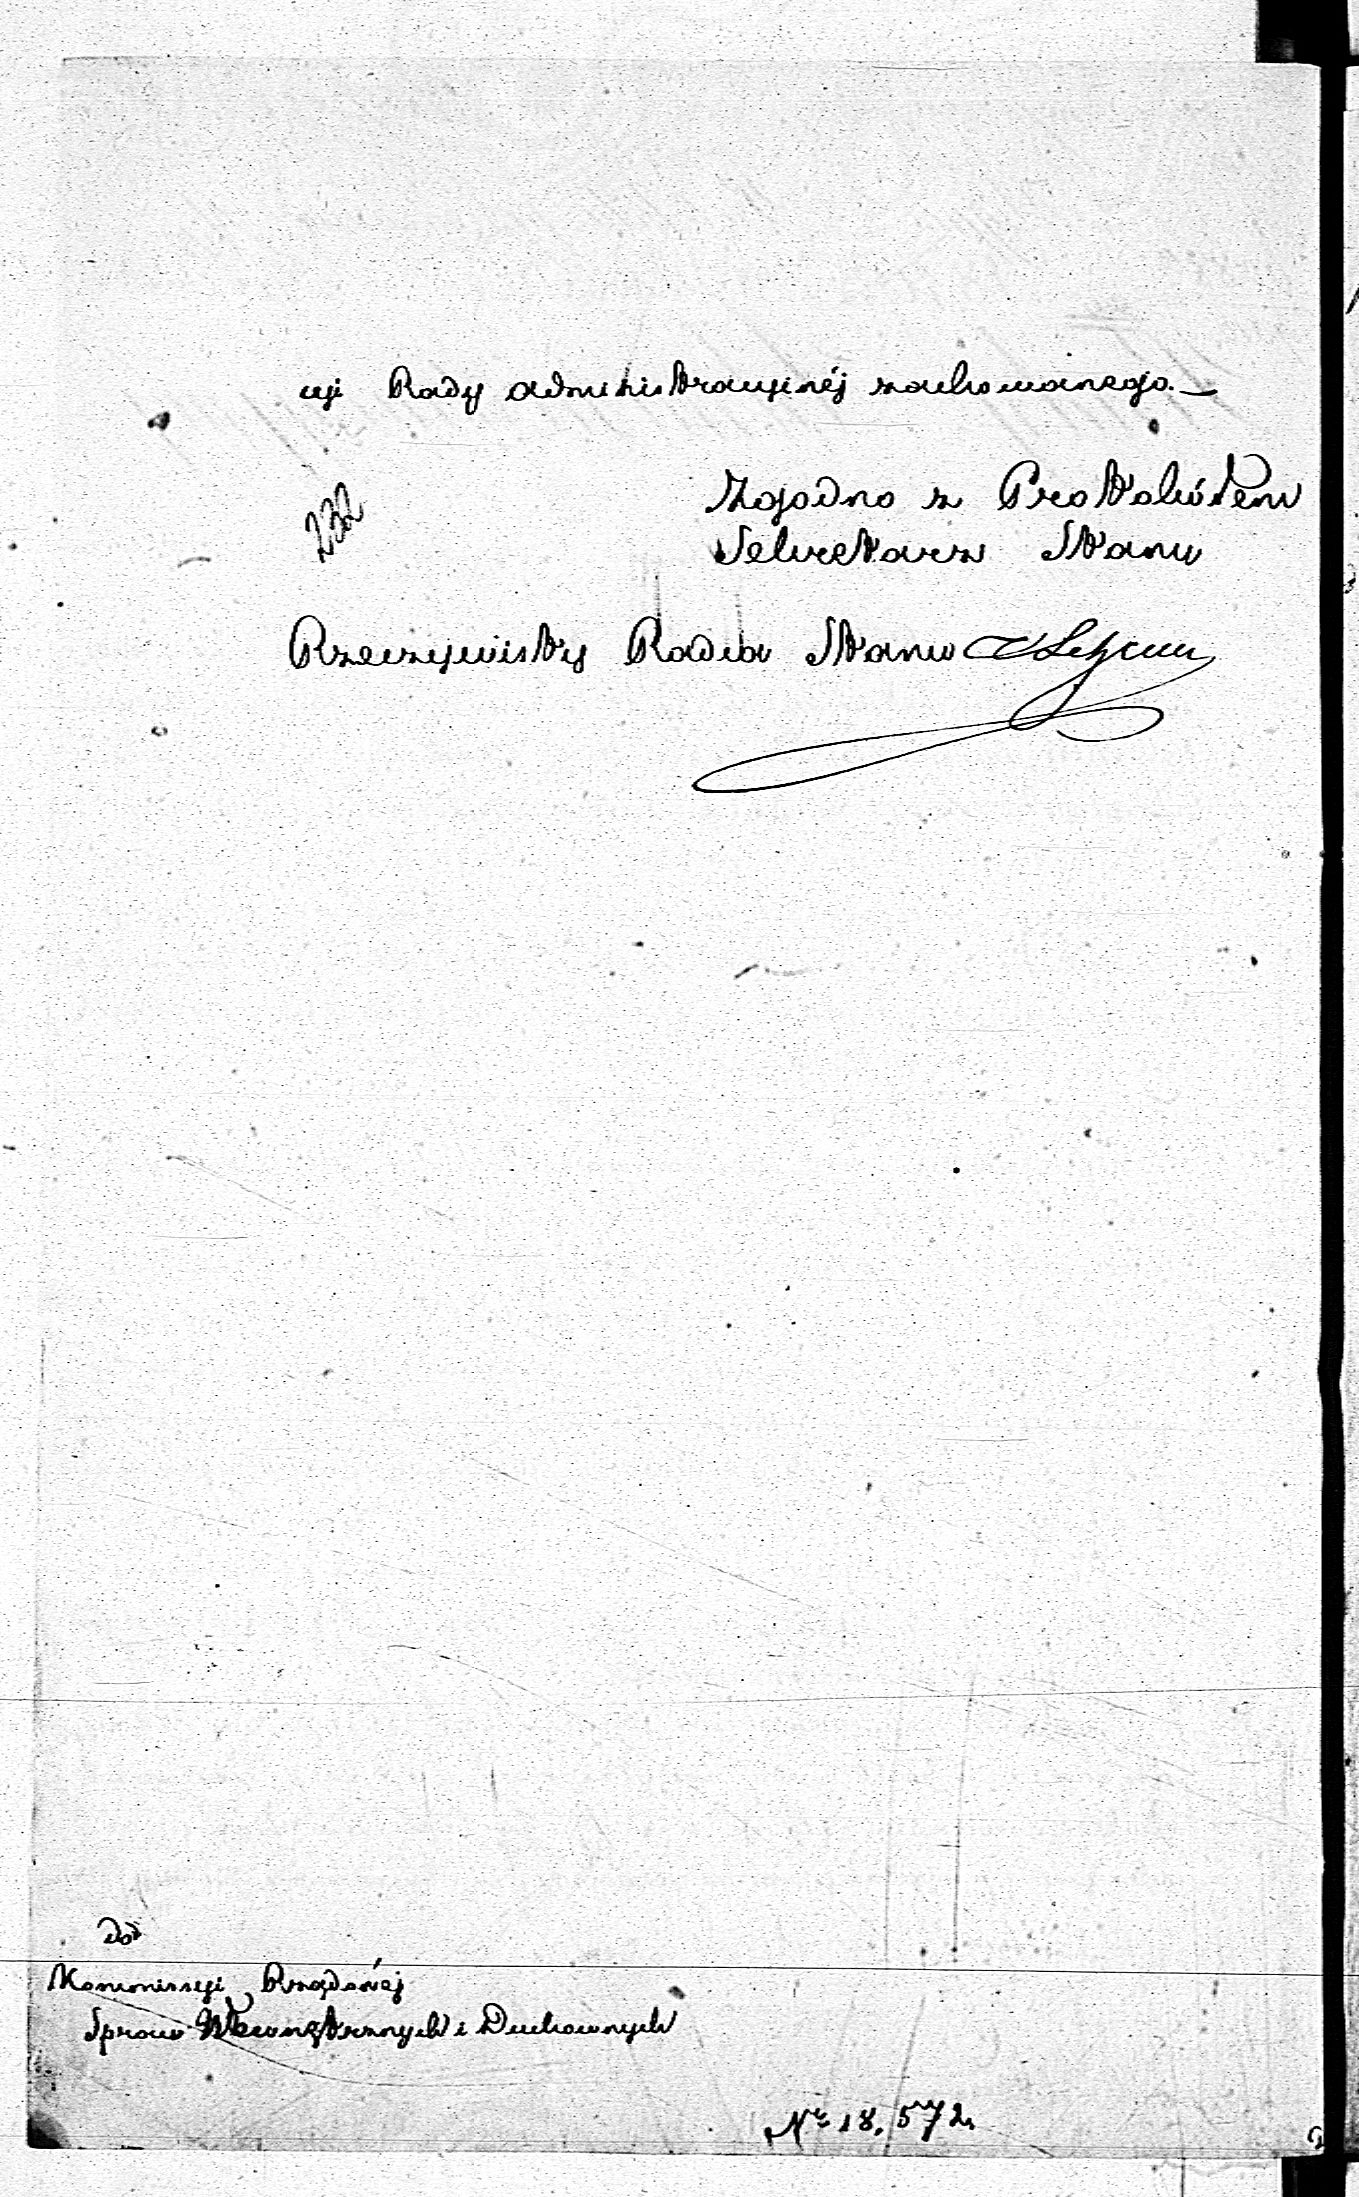 cyi Rady administracyinéj zachowanego. —
232
Zgodno z Protokółem
Sekretarz Stanu
Rzeczywisty Radca Stanu
Do
Kommissyi Rządowéj
Spraw Wewnętrznych i Duchownych
Nr 18,572.